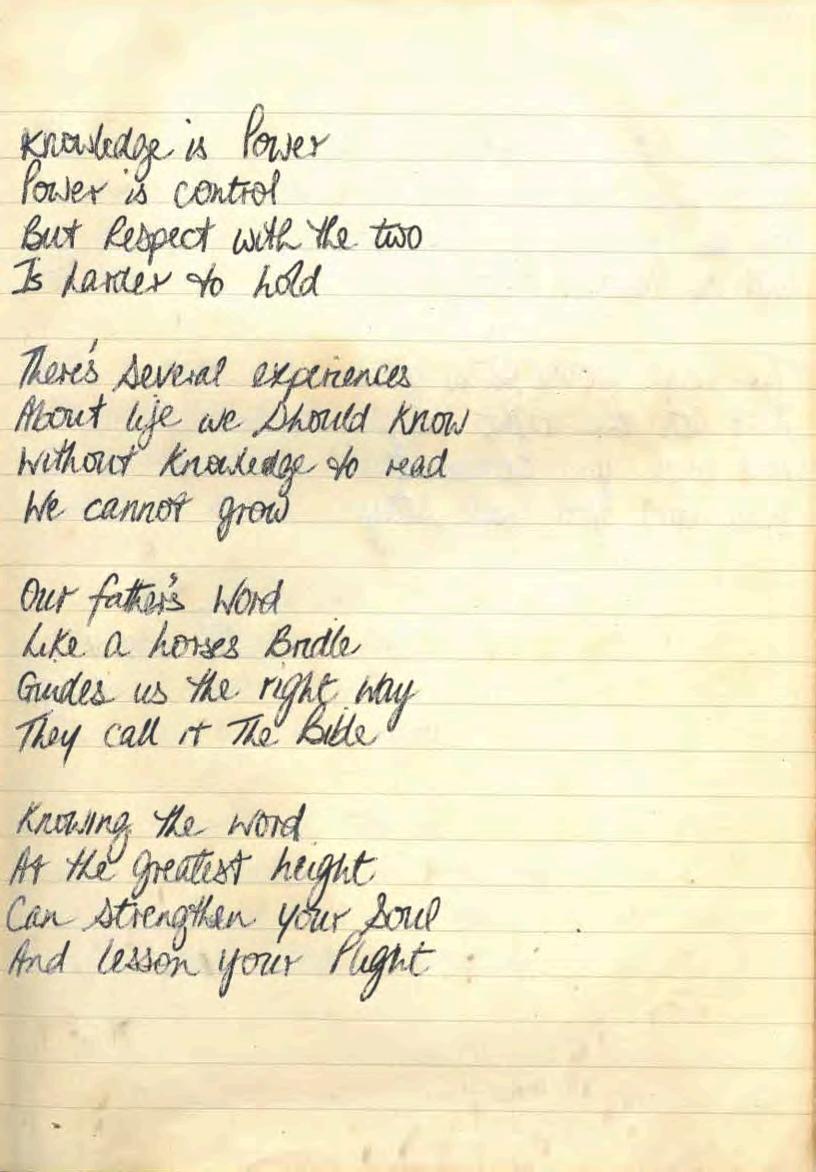 Knowledge is Power
Power is control
But Respect with the two
Is harder to hold
There's several experiences
About life we should know
Without knowledge to read
We cannot grow
Our father's Word
Like a horses Bridle
Guides us the right way
They call it The Bible
Knowing the word
At the greatest height
Can strengthen your Soul
And lesson your Plight